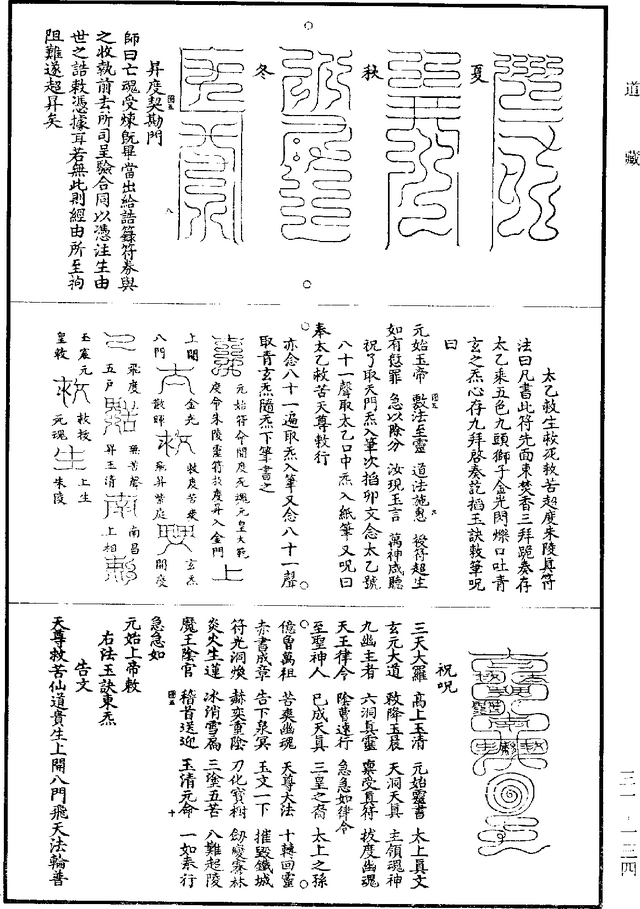 道藏
夏
秋
冬
昇度契勘門
師曰亡魂受煉既畢當出給誥籙符券與
之收執前去所司呈驗合同以憑注生由
世之誥敕憑據耳若無此則經由所至拘
阻難遂超昇矣
太乙救生救死救苦超度朱陵真符
法曰凡書此符先面東焚香三拜跪奏存
太乙乘五色九頭獅子金光閃爍口吐青
玄之炁心存九拜啓奏訖掐玉訣敕筆呪
曰
元始玉帝 敷法至靈 道法施惠 授符超生
如有愆罪 急以除分 汝現玉言 萬神咸聽
祝了取天門炁入筆次掐卯文念太乙號
八十一聲取太乙口中炁入紙筆又呪曰
奉太乙救苦天尊敕行
亦念八十一遍取炁入筆又念八十一聲
取青玄炁隨炁下筆書之
元始符命開度死魂元皇大範
度命朱陵靈符拔度昇入金門
上開
八門
金光
救度苦爽
玄炁
開度
飛度
五戶
昇玉清
南昌
上相
玉宸元
皇敕
敕救
上生
元魂
朱陵
祝呪
三天大羅 高上玉清 元始靈書 太上真文
玄元大道 敕降玉晨 天洞天真 主領魂神
九幽主者 六洞真靈 稟受真符 拔度幽魂
天王律令 陰曹速行 急急如律令
至聖神人 已成天真 三皇之裔 太上之孫
億曾萬祖 苦爽幽魂 天尊大法 十轉回靈
赤書成章 告下泉冥 玉文一下 摧毀鐵城
符光洞煥 赫奕重陰 刀化寶樹 劍變騫林
炎火生蓮 冰消雪扃 三塗五苦 八難起陵
魔王陰官 稽首送迎 玉清元命 一如奉行
急急如
元始上帝敕
右法玉訣東炁
告文
天尊救苦仙道貴生上開八門飛天法輪普
三一·一三四